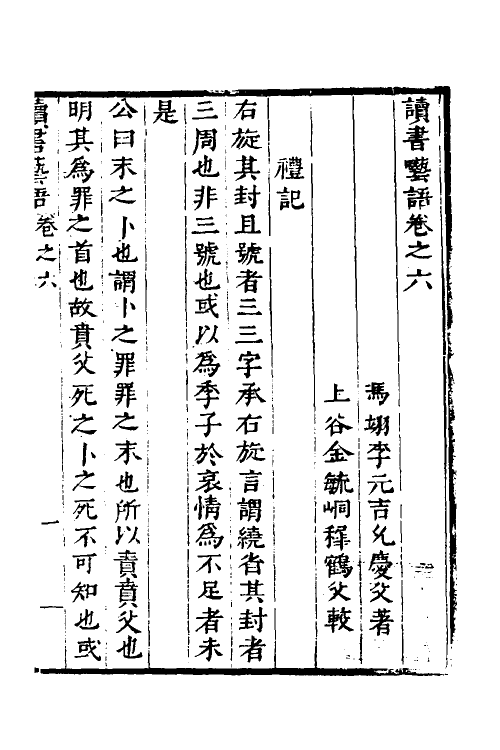 讀書囈語卷之六
馮翊李元吉允慶父著
上谷金毓峒稺鶴父較
禮記
右旋其封且號者三三字承右旋言謂繞省其封者
三周也非三號也或以為季子於哀情為不足者未
是
公曰末之卜也謂卜之罪罪之末也所以責賁父也
明其為罪之首也故賁父死之卜之死不可知也或
讀書囈語 卷之六 一